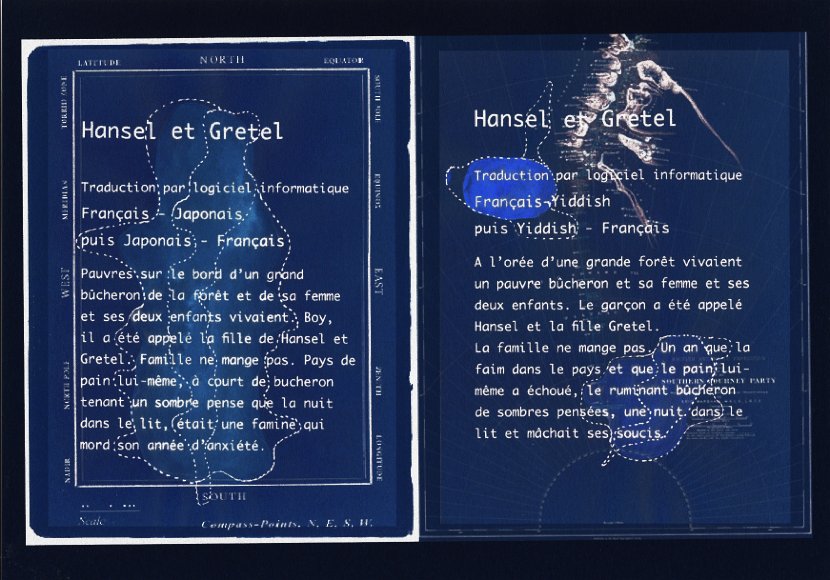 LATITUDE
NORTH
EQUATOR
TORRID ZONE
SOUTH POLE
MERIDIAN
EQUINOX
WEST
EAST
NORTH POLE
ZENITH
NADIR
LONGITUDE
Hansel et Gretel
Traduction par logiciel informatique
Français - Japonais
puis Japonais - Français
Pauvres sur le bord d’un grand
bûcheron de la forêt et de sa femme
et ses deux enfants vivaient. Boy,
il a été appelé la fille de Hansel et
Gretel. Famille ne mange pas. Pays de
pain lui-même, à court de bucheron
tenant un sombre pense que la nuit
dans le lit, était une famine qui
mord son année d’anxiété.
SOUTH
Scale
Compass-Points, N, E, S, W.
Hansel et Gretel
Traduction par logiciel informatique
Français-Yiddish
puis Yiddish - Français
A l’orée d’une grande forêt vivaient
un pauvre bûcheron et sa femme et ses
deux enfants. Le garçon a été appelé
Hansel et la fille Gretel.
La famille ne mange pas. Un an que la
faim dans le pays et que le pain lui-
même a échoué, le ruminant bûcheron
de sombres pensées, une nuit dans le
lit et mâchait ses soucis.
SOUTHERN JOURNEY PARTY